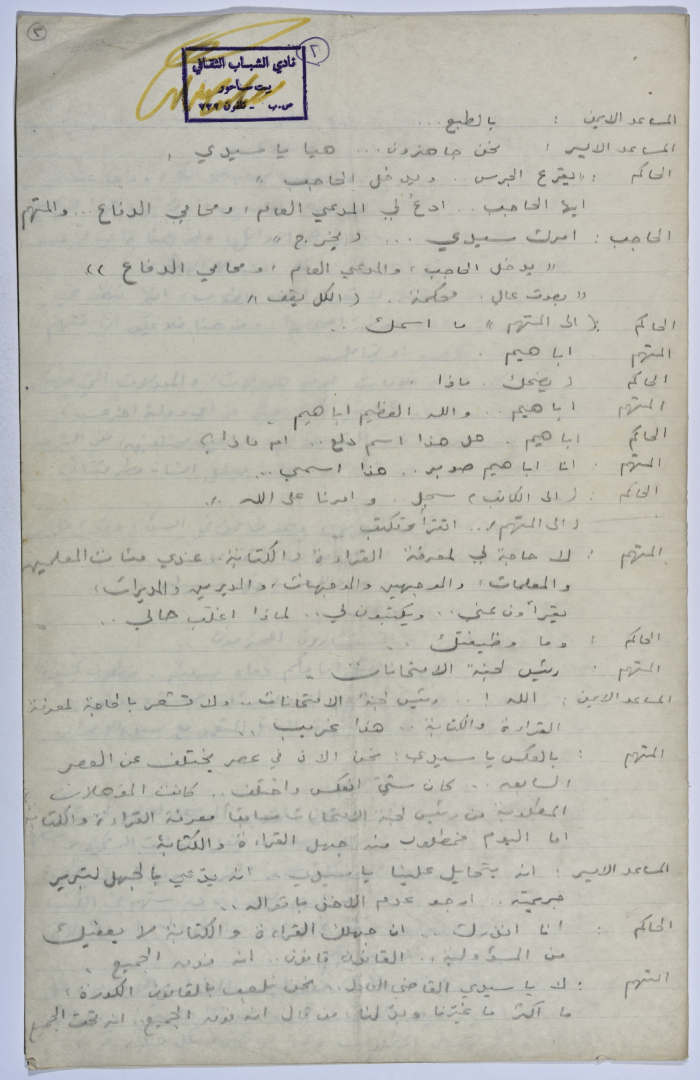 ٣
٢
نادي الشباب الثقافي
بيت ساحور
ص.ب - تلفون ٧٢٩
المساعد الايمن : بالطبع ...
المساعد الايسر : نحن جاهزون ... هيا يا سيدي .
الحاكم : "يقرع الجرس .. ويدخل الحاجب "
ايها الحاجب .. ادع لي المدعي العام ، ومحامي الدفاع .. والمتهم
الحاجب : امرك سيدي ... ( يخرج "
" يدخل الحاجب ، والمدعي العام ، ومحامي الدفاع "
" بصوت عال : محكمة .. ( الكل يقف "
الحاكم : ( الى المتهم " ما اسمك ..
المتهم : اباهيم .
الحاكم ( يضحك .. ماذا
المتهم اباهيم .. والله العظيم اباهيم ..
الحاكم اباهيم . هل هذا اسم دلع .. ام ماذا ؟
المتهم : انا اباهيم صوبر .. هذا اسمي ..
الحاكم : ( الى الكاتب ) سجل .. وامرنا على الله ..
( الى المتهم ) .. اتقرأ وتكتب
المتهم : لا حاجة لي لمعرفة القراءة والكتابة .. عندي مئات المعلمين
والمعلمات ، والموجهين والموجهات ، والمديرين والمديرات ،
يقرأون عني .. ويكتبون لي .. لماذا اغلب حالي ..
الحاكم : وما وظيفتك ..
المتهم : رئيس لجنة الامتحانات
المساعد الايمن : الله ! .. رئيس لجنة الامتحانات .. ولا تشعر بالحاجة لمعرفة
القراءة والكتابة .. هذا غريب ..
المتهم : بالعكس يا سيدي : نحن الان في عصر يختلف عن العصر
السابق .. كان شيئ انعكس واختلف .. كانت المؤهلات
المطلوبة من رئيس لجنة الامتحانات سابقا معرفة القراءة والكتابة
اما اليوم فمطلوب منه جهل القراءة والكتابة
المساعد الايسر : انه يتحايل علينا يا سيدي .. انه يدعي بالجهل لتبرير
جريمته .. ارجو عدم الاخذ باقواله ..
الحاكم : انا انذرك .. ان جهلك القراءة والكتابة لا يعفيك
من المسؤولية .. القانون قانون .. انه فوق الجميع .
المتهم : لا يا سيدي القاضي .. نحن نلعب بالقانون الكورة ،
ما اكثر ما غيرنا وبدلنا من قال انه فوق الجميع .. انه تحت الجميع